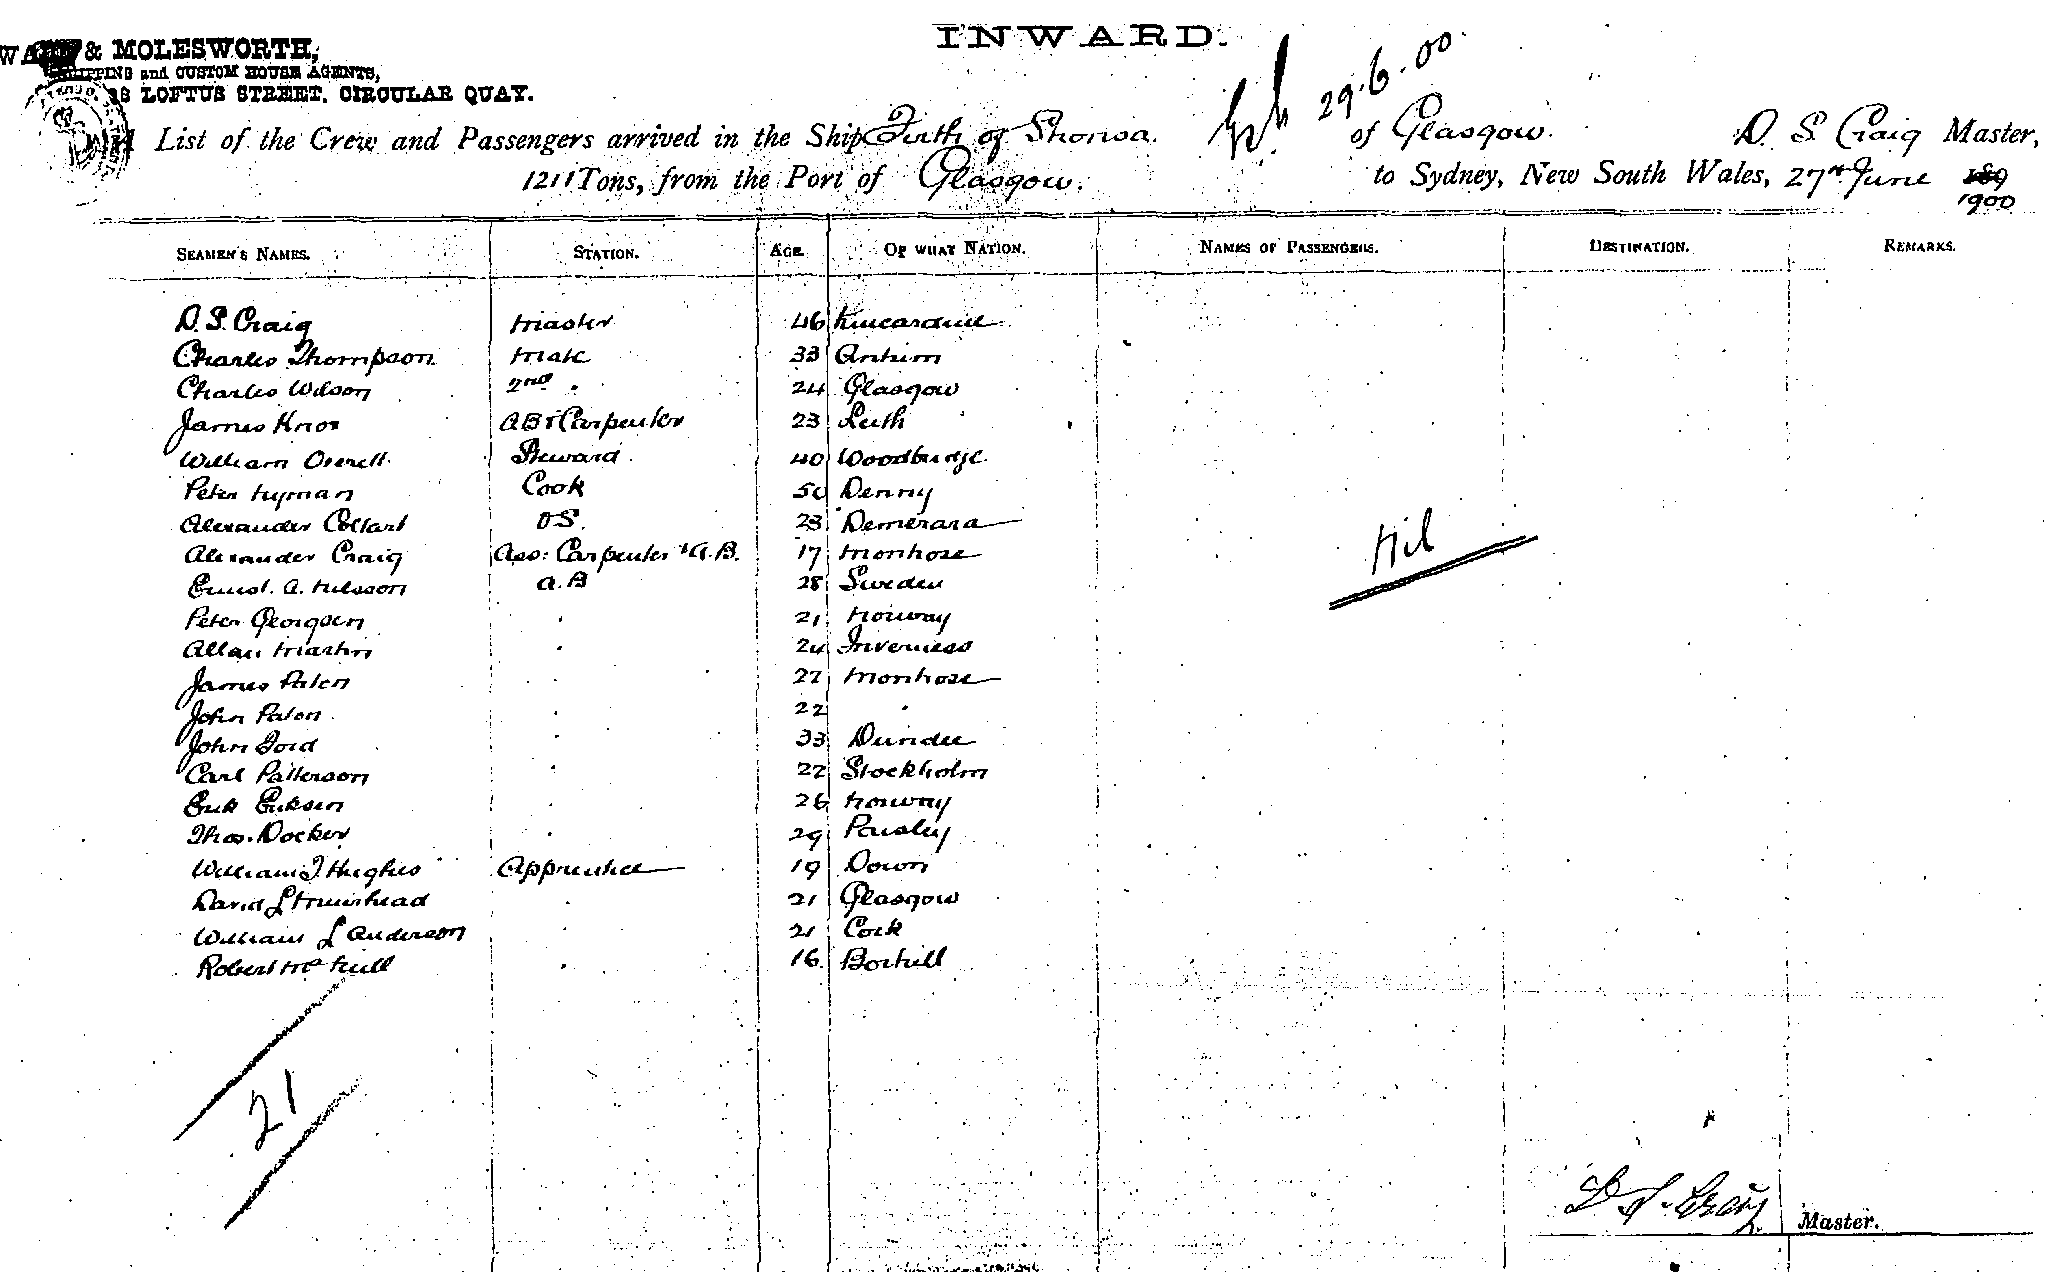 INWARD.
& MOLESWORTH,
SHIPPING and CUSTOM HOUSE AGENTS,
LOFTUS STREET, CIRCULAR QUAY.
29.6.00
List of the Crew and Passengers arrived in the Ship Firth of Stronsa. of Glasgow. D. S. Craig Master,
1211 Tons, from the Port of Glasgow. to Sydney, New South Wales, 27th June 189
1900
SEAMEN'S NAMES. STATION. AGE OF WHAT NATION. NAMES OF PASSENGERS. DESTINATION. REMARKS.
D. S. Craig Master 46 Kincardine
Charles Thompson Mate 33 Antrim
Charles Wilson 2nd " 24 Glasgow
James Knox AB & Carpenter 23 Leith
William Overell Steward 40 Woodbridge
Peter Hyman Cook 50 Denny
Alexander Collart O S. 23 Demerara
Alexander Craig Ass: Carpenter & A.B. 17 Montrose
Ernest. A. Nilsson A.B 28 Sweden
Nil
Peter Georgsen " 21 Norway
Allan Martin " 24 Inverness
James Paton " 27 Montrose
John Paton " 22 "
John Ford " 33 Dundee
Carl Patterson " 22 Stockholm
Erik Eriksen " 26 Norway
Thos. Docker " 29 Paisley
William J Hughes Apprentice 19 Down
David L Muirhead " 21 Glasgow
William L Anderson " 21 Cork
Robert McNeill " 16 Boxhill
21
D. S. Craig Master.